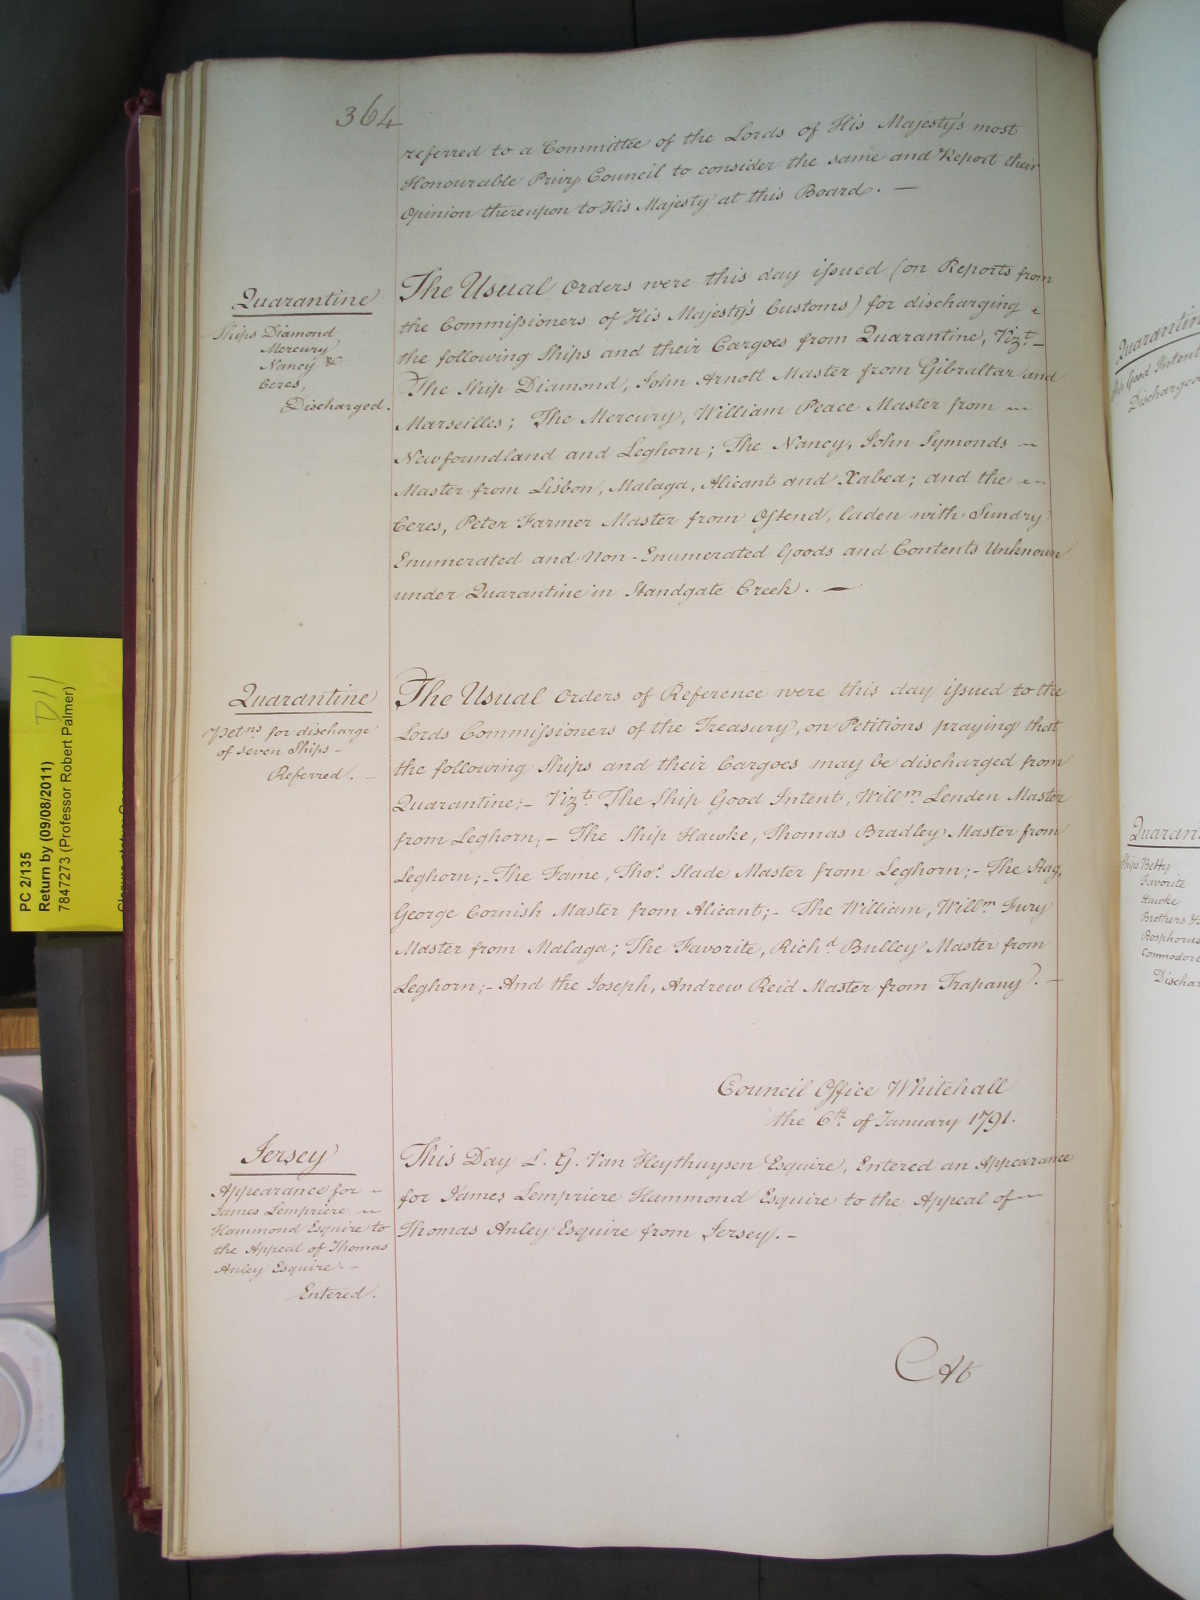 364
referred to a Committee of the Lords of His Majesty's most
Honourable Privy Council to consider the same and Report their
Opinion thereupon to His Majesty at this Board. —
Quarantine
Ships Diamond
Mercury
Nancy &
Ceres,
Discharged.
The Usual Orders were this day issued (on Reports from
the Commissioners of His Majesty's Customs) for discharging
the following Ships and their Cargoes from Quarantine, Vizt. –
The Ship Diamond, John Arnott Master from Gibraltar and
Marseilles; The Mercury, William Peace Master from
Newfoundland and Leghorn; The Nancy, John Symonds
Master from Lisbon, Malaga, Alicant and Xabea; and the
Ceres, Peter Farmer Master from Ostend, laden with Sundry
Enumerated and Non-Enumerated Goods and Contents Unknown
under Quarantine in Standgate Creek. —
Quarantine
Petns for discharge
of seven Ships –
Referred. –
The Usual Orders of Reference were this day issued to the
Lords Commissioners of the Treasury, on Petitions praying that
the following Ships and their Cargoes may be discharged from
Quarantine;– Vizt. The Ship Good Intent, Willm. Lenden Master
from Leghorn;– The Ship Hawke, Thomas Bradley Master from
Leghorn;– The Fame, Thos. Slade Master from Leghorn;– The Stag,
George Cornish Master from Alicant;– The William, Willm. Jury
Master from Malaga; The Favorite, Richd. Bulley Master from
Leghorn;– And the Joseph, Andrew Reid Master from Trapany. –
Council Office Whitehall
the 6th. of January 1791.
Jersey
Appearance for
James Lempriere
Hammond Esquire to
the Appeal of Thomas
Anley Esquire. –
Entered.
This Day L. G. Van Heythuysen Esquire, Entered an Appearance
for James Lempriere Hammond Esquire to the Appeal of
Thomas Anley Esquire from Jersey. –
At
PC 2/135
Return by (09/08/2011)
7847273 (Professor Robert Palmer)
D11
Quarantin
Good Intent
Discharged
Quaran
Ships Betty
Favorite
Hawke
Brothers &
Bosphorus
Commodore
Dischar